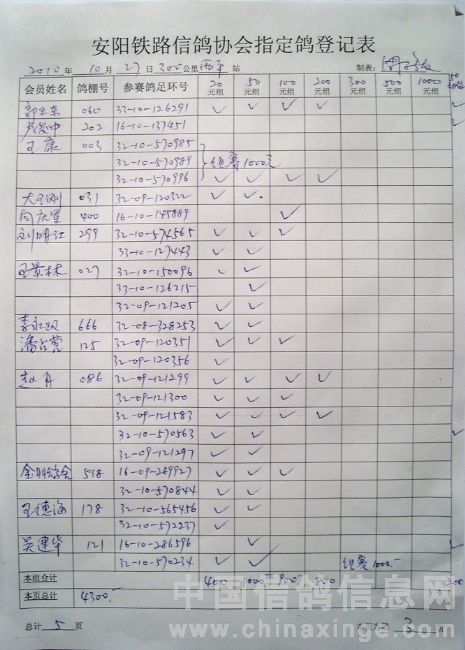 安阳铁路信鸽协会指定鸽登记表
2010 年 10 月 27 日 300 公里 站 制表:
会员姓名 鸽棚号 参赛鸽足环号 20元组 50元组 100元组 200元组 300元组 500元组 1000元组 50
060 33-10-126291 ✓ ✓ ✓ ✓
202 16-10-137451
王康 003 32-10-570985
32-10-570989 组赛1000元
32-10-570996 ✓ ✓ ✓ ✓
031 32-09-120322 ✓ ✓
400 16-10-145889 ✓
299 32-10-574565 ✓ ✓ ✓
33-10-127443 ✓ ✓
王景林 027 32-10-150096 ✓ ✓
33-10-126215 ✓
32-09-121205 ✓ ✓
666 32-08-328253 ✓ ✓
125 32-09-120351 ✓ ✓ ✓
32-09-120356 ✓
赵月 086 32-09-121299 ✓ ✓ ✓ ✓
32-09-121300 ✓ ✓ ✓
32-09-121583 ✓ ✓ ✓ ✓
32-10-570563 ✓ ✓
32-09-121297 ✓ ✓
518 16-09-269927 ✓ ✓ ✓
32-10-570844 ✓ ✓
王德海 178 32-10-565456 ✓ ✓
32-10-572237 ✓
吴建华 121 16-10-286596 ✓ ✓
32-10-570234 ✓ ✓ 组赛1000.-
本组合计 400 1000 900
本页总计 4300.-
总计 5 页 3
中国信鸽信息网
www.chinaxinge.com